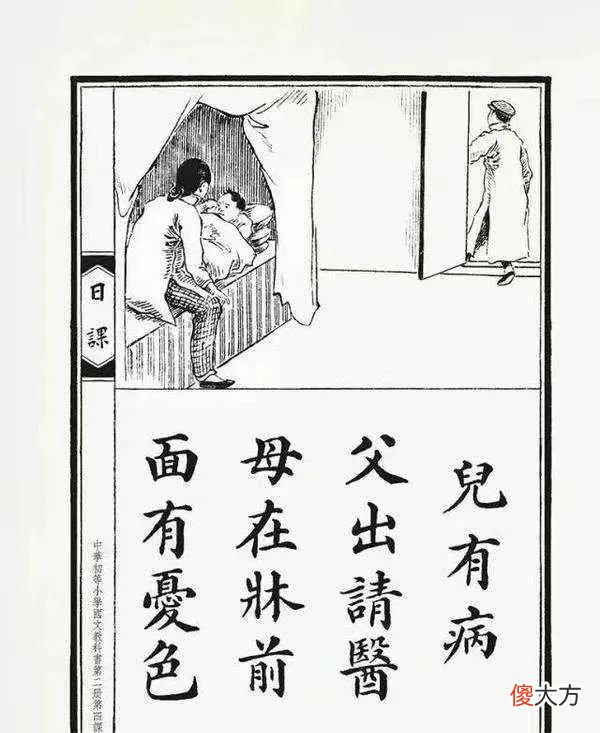 兒有病
父出請醫
母在牀前
面有憂色
日課
中華初等小學國文教科書第二册第四課
傻大方